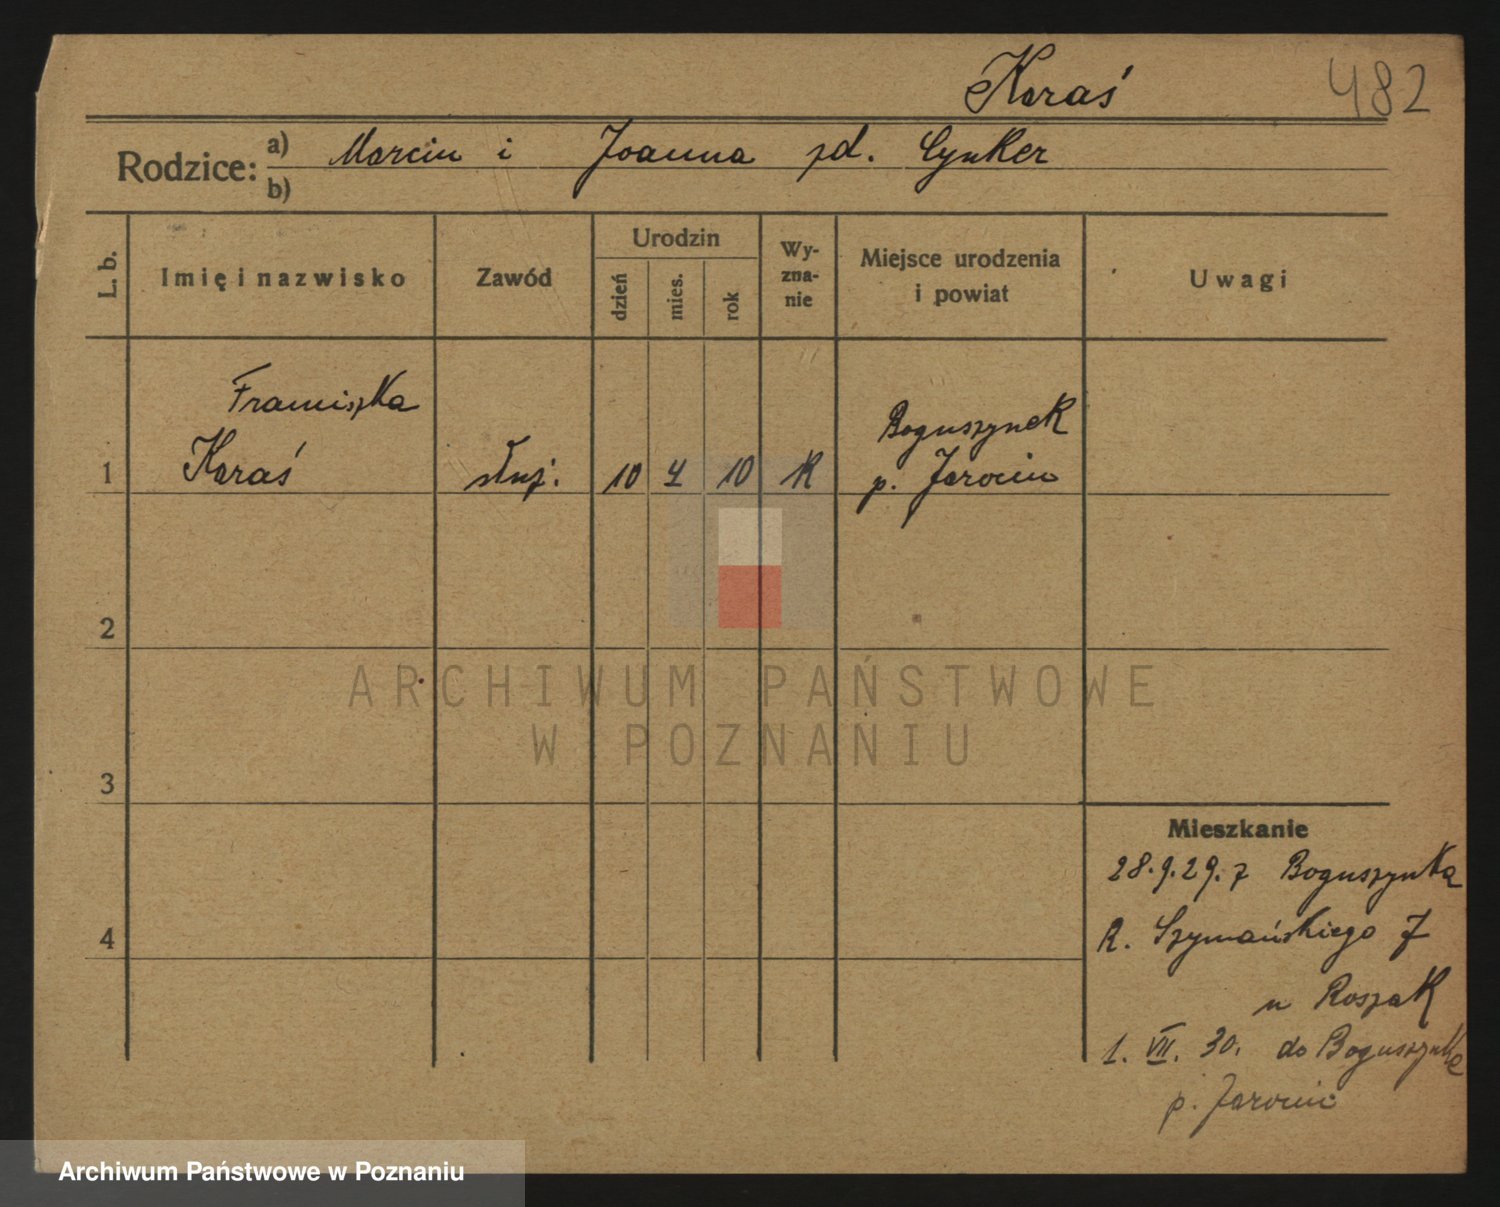 Karaś
482
Rodzice: a) Marcin i Joanna zd. Cynker
b)
L. b.
Imię i nazwisko
Zawód
Urodzin
dzień
mies.
rok
Wy-
zna-
nie
Miejsce urodzenia
i powiat
Uwagi
Franciszka
Karaś
1
służ.
10
4
10
K
Boguszynek
p. Jarocin
2
3
4
Mieszkanie
28.9.29. z Boguszynka
R. Szymańskiego 7
u Roszak
1. VII. 30. do Boguszynka
p. Jarocin
ARCHIWUM PAŃSTWOWE
W POZNANIU
Archiwum Państwowe w Poznaniu